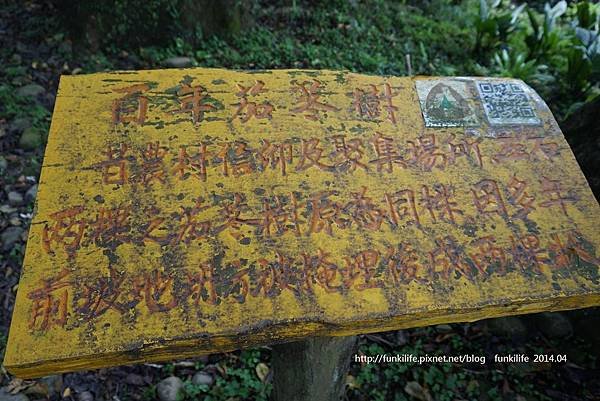 百年茄苳樹
昔農村信仰及聚集場所左右
兩棵之茄苳樹原為同株因多年
前坡地坍方被掩埋後成兩棵狀
http://funkili.pixnet.net/blog funkili 2014.04